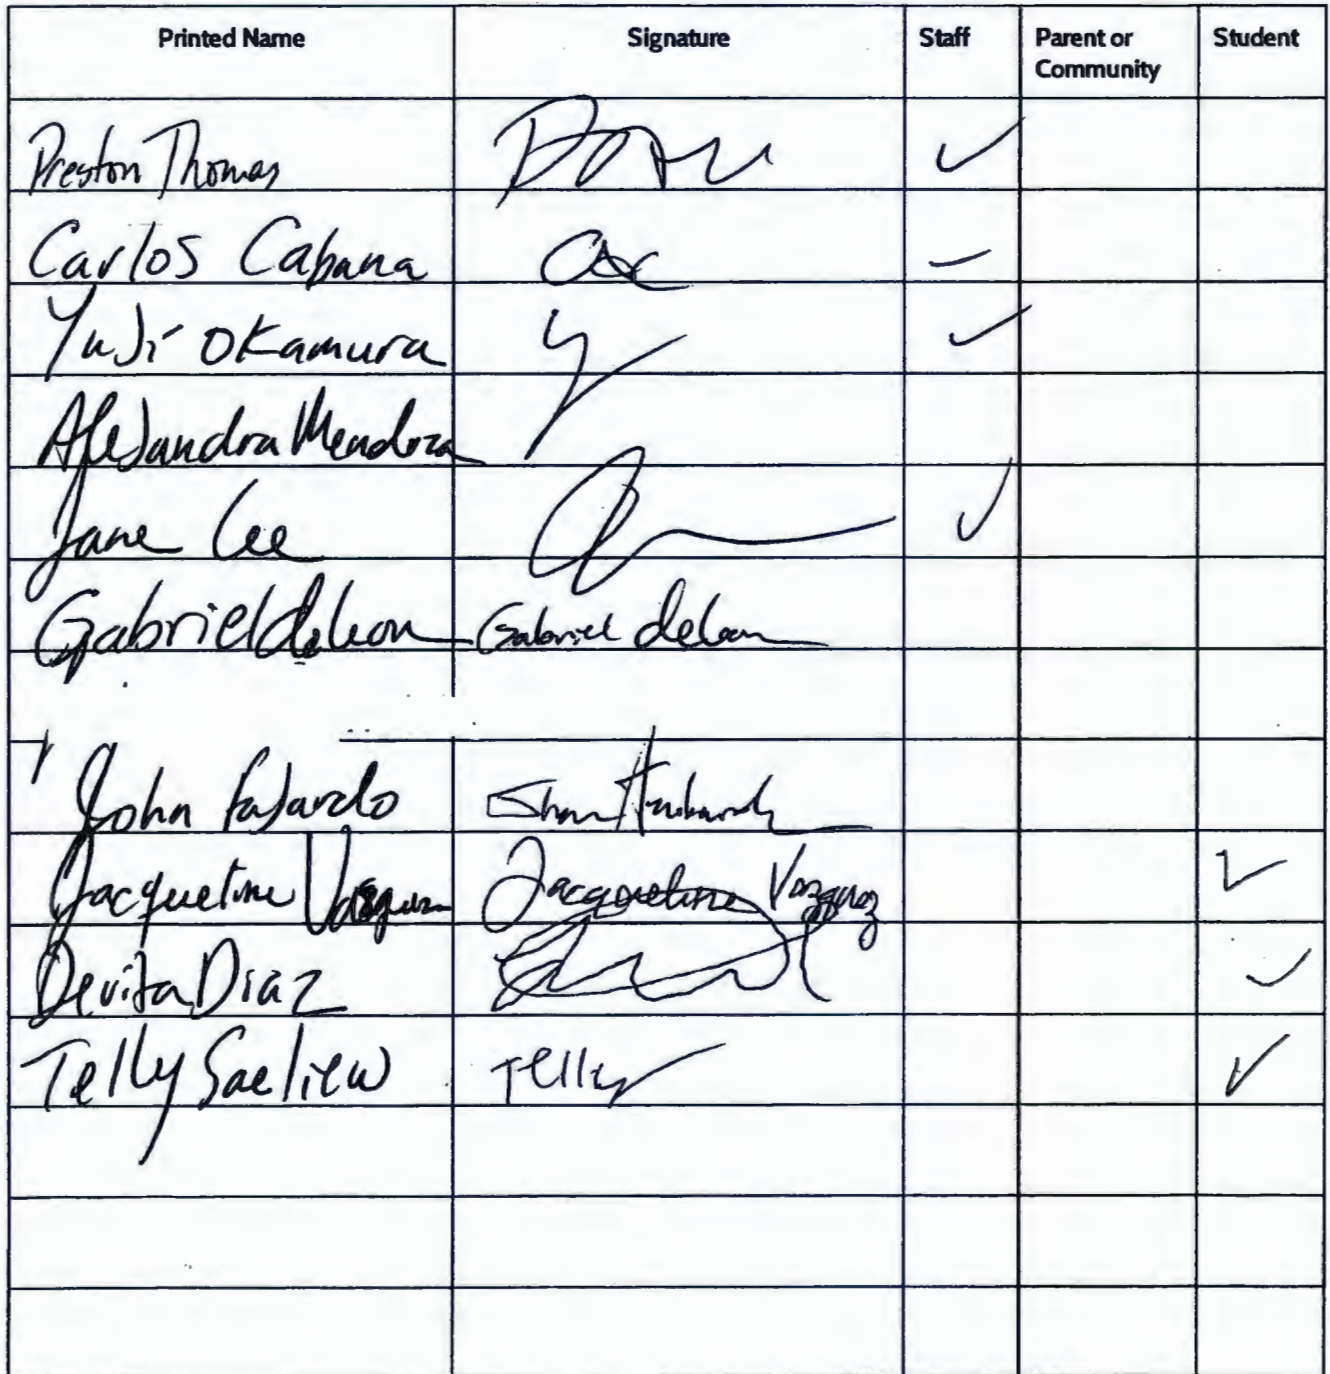 Printed Name Signature Staff Parent or Community Student
Preston Thomas ✓
Carlos Cabana –
Yuji Okamura ✓
Alejandra Mendoza
Jane Lee ✓
Gabriel deleon Gabriel deleon
John Fajardo
Jacqueline Vazquez Jacqueline Vazquez ✓
Devita Diaz ✓
Telly Saeliew Telly ✓